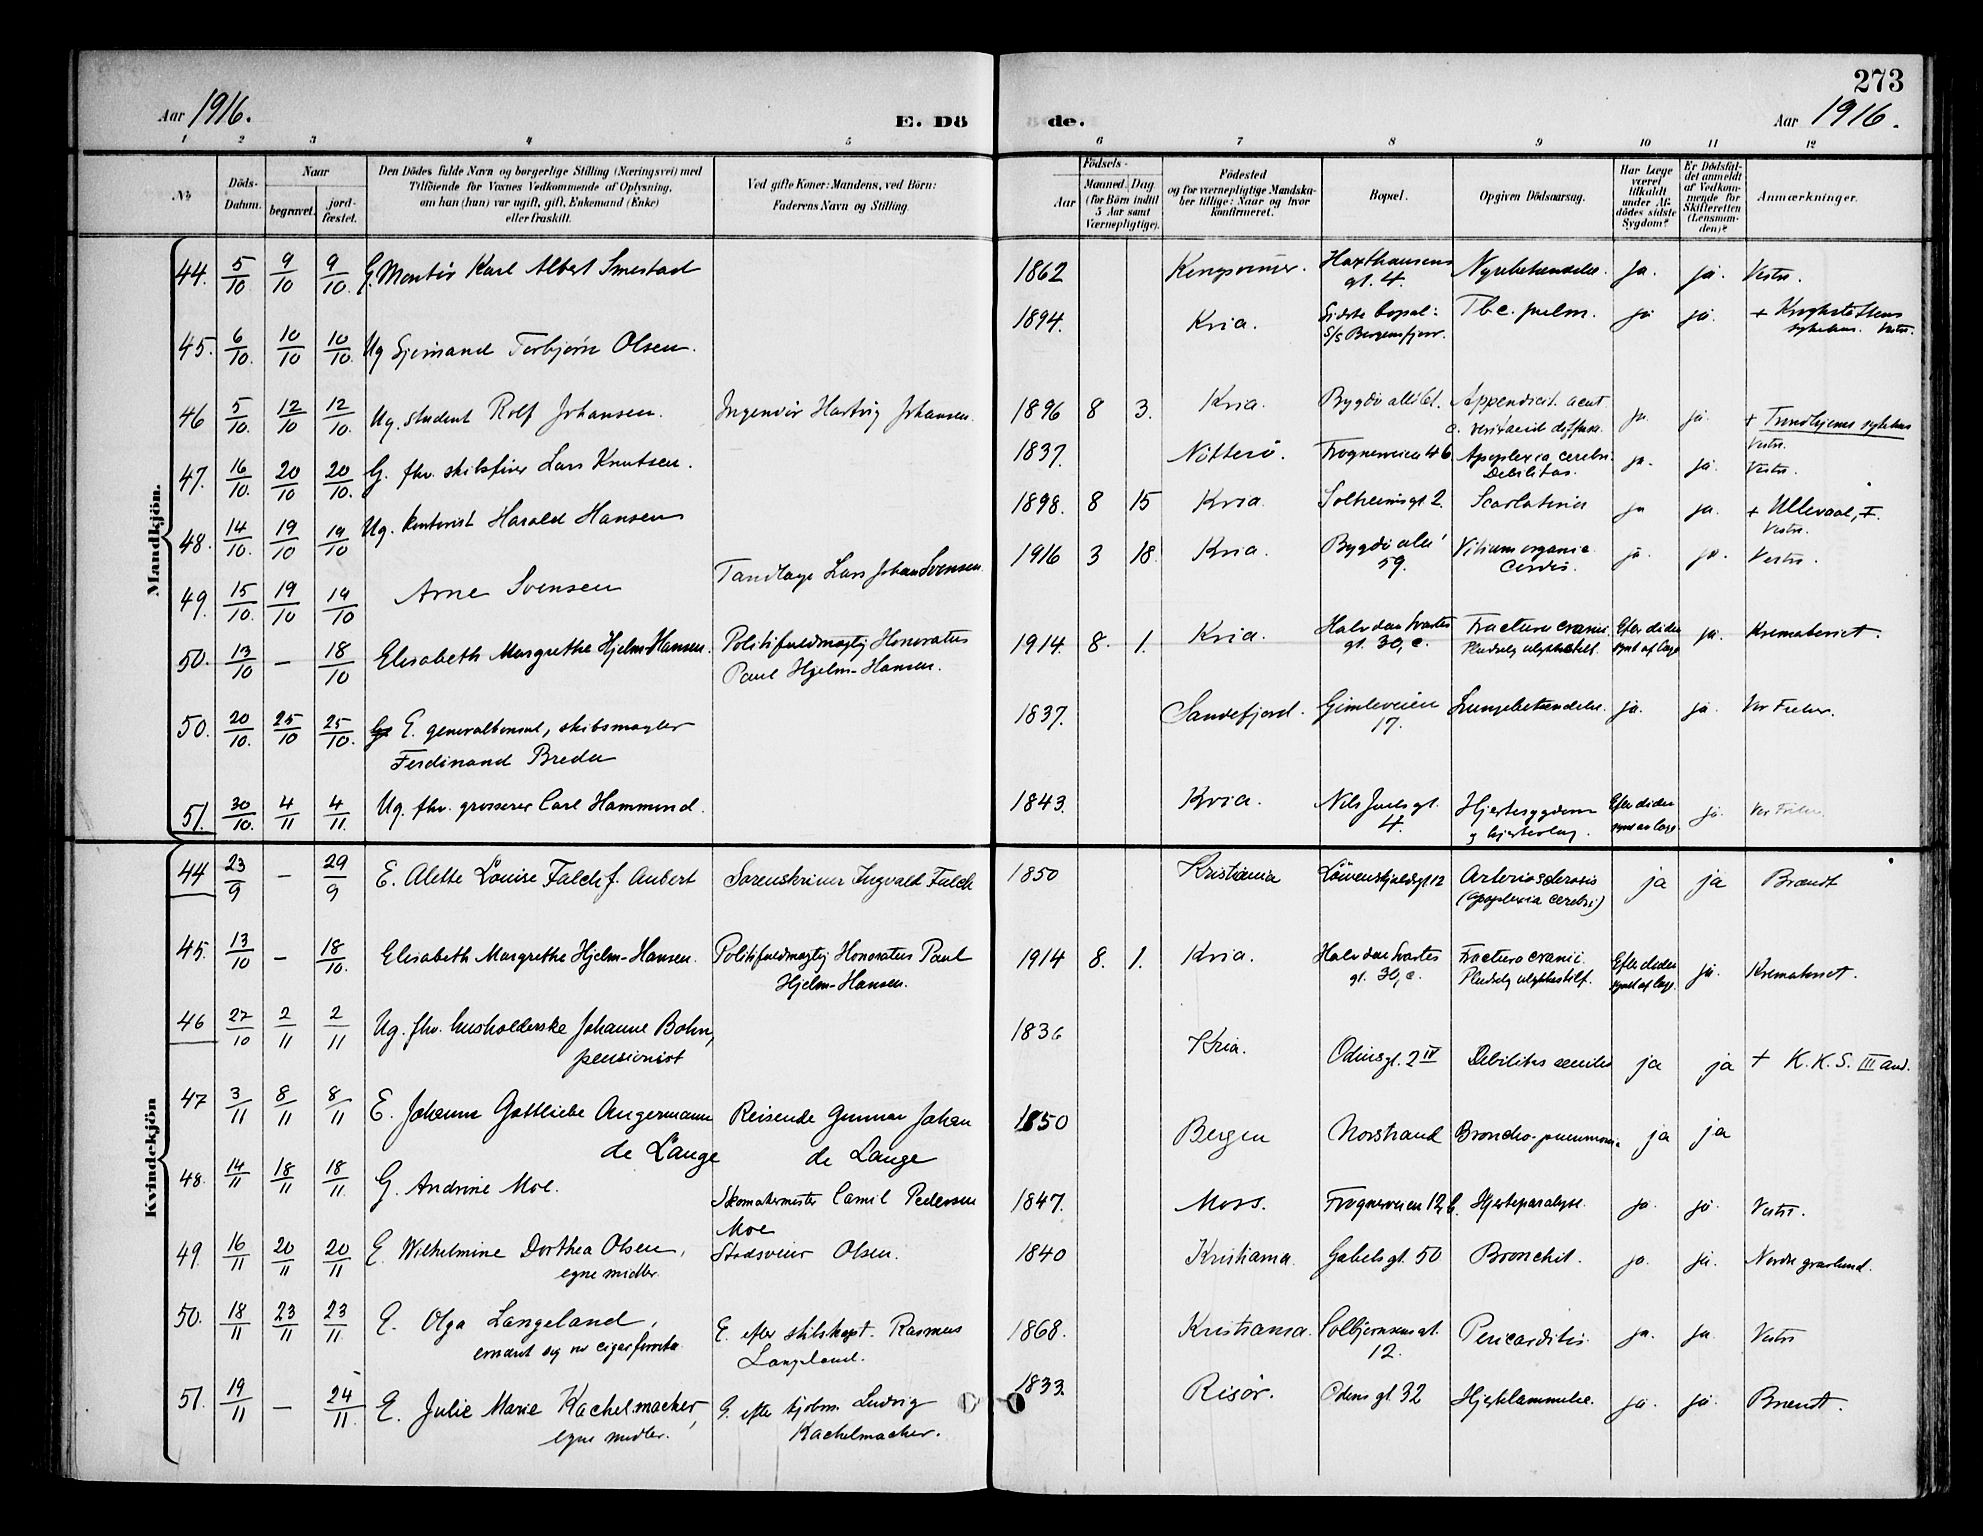 273
Aar 1916. E. Dö de. Aar 1916.
1 2 3 4 5 6 7 8 9 10 11 12
No. Döds-Datum. Naar begravet. jord-fæstet. Den Dödes fulde Navn og borgerlige Stilling (Næringsvei) med Tilföiende for Voxnes Vedkommende af Oplysning, om han (hun) var ugift, gift, Enkemand (Enke) eller fraskilt. Ved gifte Koner: Mandens, ved Börn: Faderens Navn og Stilling. Födsels- Aar Maaned. Dag (for Börn indtil 5 Aar samt Værnepligtige). Födested og for værnepligtige Mandska-ber tillige: Naar og hvor konfirmeret. Bopæl. Opgiven Dödsaarsag. Har Læge været tilkaldt under Af-dödes sidste Sygdom? Er Dödsfal-det anmeldt af Vedkom-mende for Skifteretten (Lensman-den)? Anmærkninger.
Mandkjön.
44. 5/10 9/10 9/10. G. Montör Karl Albert Smestad 1862 Kongsvinger. Haxthausens gt. 4. Nyrebetændelse. ja. ja. Vestre.
45. 6/10. 10/10 10/10. Ug Sjömand Torbjörn Olsen. 1894. Kria. Sidste bopæl: S/S Bergensfjord. Tbc. pulm. ja ja. + Kroghstöttens sykehus. Vestre.
46 5/10. 12/10 12/10. Ug. student Rolf Johansen. Ingeniör Hartvig Johansen. 1896 8 3. Kria. Bygdö allé 61. Appendicit. acut ja. ja. + Trondhjems sykehus Vestre.
47. 16/10. 20/10 20/10. G. fhv. skibsförer Lars Knutsen. 1837. Nötterö. Frognerveien 46 Apoplexia cerebri Debilitas. ja. ja. Vestre.
48. 14/10. 19/10 19/10 Ug. kontorist Harald Hansen 1898. 8 15 Kria. Solheimsgt 2. Scarlatina ja ja. + Ullevaal, Vestre.
49. 15/10. 19/10 19/10 Arne Svensen Tandlæge Lars Johan Svensen. 1916 3 18. Kria. Bygdö allé 59. Vitium organic. Cordis. ja. ja. Vestre.
50. 13/10 — 18/10 Elisabeth Margrethe Hjelm-Hansen. Politifuldmægtig Honoratus Paul Hjelm-Hansen. 1914. 8. 1. Kria. Halvdan Svartes gt. 30, c. Fractura cranii. Pludselig ulykkestilf. Efter döden synet af læge ja. Krematoriet.
50. 20/10. 25/10 25/10. E. generalkonsul, skibsmægler Ferdinand Breder 1837. Sandefjord. Gimleveien 17. Lungebetændelse. ja. ja. Vor Frelser.
51. 30/10. 4/11 4/11. Ug. fhv. grosserer Carl Hammond. 1843. Kria. Nils Juels gt. 4. Hjertesygdom og hjerteslag. Efter döden synet av læge. ja. Vor Frelser.
Kvindekjön
44 23/9 — 29/9 E. Alette Louise Falch f. Aubert Sorenskriver Ingvald Falch 1850 Kristiania Lövenskjoldsgt 12 Arteriosclerosis (Apoplexia cerebri) ja ja Brændt
45. 13/10 — 18/10. Elisabeth Margrethe Hjelm-Hansen. Politifuldmægtig Honoratus Paul Hjelm-Hansen. 1914 8. 1. Kria. Halvdan Svartes gt. 30, c. Fractura cranii. Pludselig ulykkestilf. Efter döden synet af læge. ja. Krematoriet.
46 27/10 2/11 2/11 Ug. fhv. husholderske Johanne Bohn, pensionist 1836 Kria. Odinsgt. 2 IV Debilitas senilis ja ja + K. K. S. III avd.
47 3/11 8/11 8/11 E. Johanna Gottliebe Angermann de Lange Reisende Gunnar Johan de Lange 1850 Bergen Norstrand Broncho-pneumoni. ja ja
48. 14/11 18/11 18/11. G. Andrine Moe. Skomakermester Camil Pedersen Moe 1847. Moss. Frognerveien 12, b. Hjerteparalyse. ja. ja. Vestre.
49. 16/11 20/11 20/11 E. Wilhelmine Dorthea Olsen, egne midler. Stadsveier Olsen. 1840 Kristiania. Gabels gt. 50 Bronchit. ja. ja. Nordre gravlund.
50. 18/11 23/11 23/11. E. Olga Langeland, ernæret sig av cigarforretn. E. efter skibskapt. Rasmus Langeland. 1868. Kristiania. Solbjörnsens gt. 12. Pericarditis. ja. ja. Vestre
51. 19/11 — 24/11. E. Julie Marie Kachelmacher, egne midler. E. efter kjöbm. Ludvig Kachelmacher. 1833 Risör. Odins gt. 32 Hjertelammelse. ja. ja. Brændt.